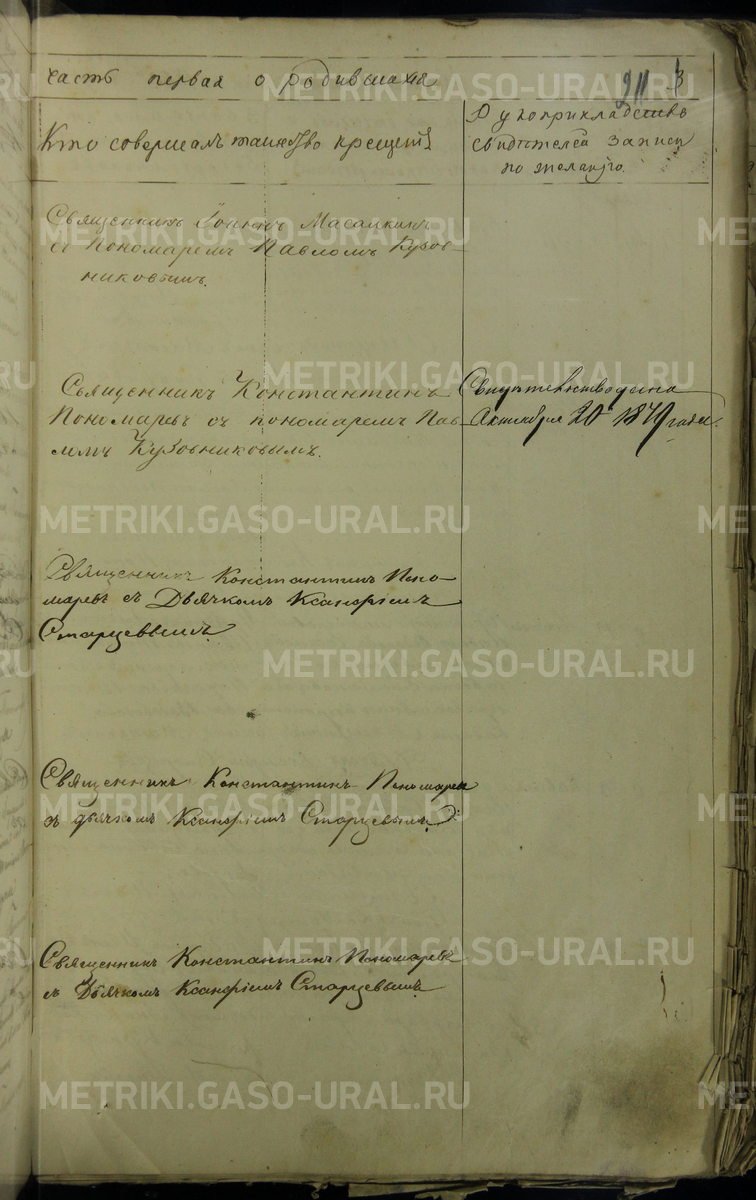 часть первая о родившихся
211 3
Кто совершалъ таинство крещенія
Рукоприкладство
свидѣтелей записи
по желанію.
Священникъ Іоаннъ Масалкинъ
съ Пономаремъ Павломъ Кузов-
никовымъ.
Священникъ Константинъ
Пономаревъ съ пономаремъ Пав-
ломъ Кузовниковымъ.
Свидѣтельство дано
Октября 20 1879 года.
Священникъ Константинъ Поно-
маревъ съ Дьячкомъ Ксанфіемъ
Старцевымъ.
Священникъ Константинъ Пономаревъ
съ дьячкомъ Ксанфіемъ Старцевымъ.
Священникъ Константинъ Пономаревъ
съ Дьячкомъ Ксанфіемъ Старцевымъ
METRIKI.GASO-URAL.RU